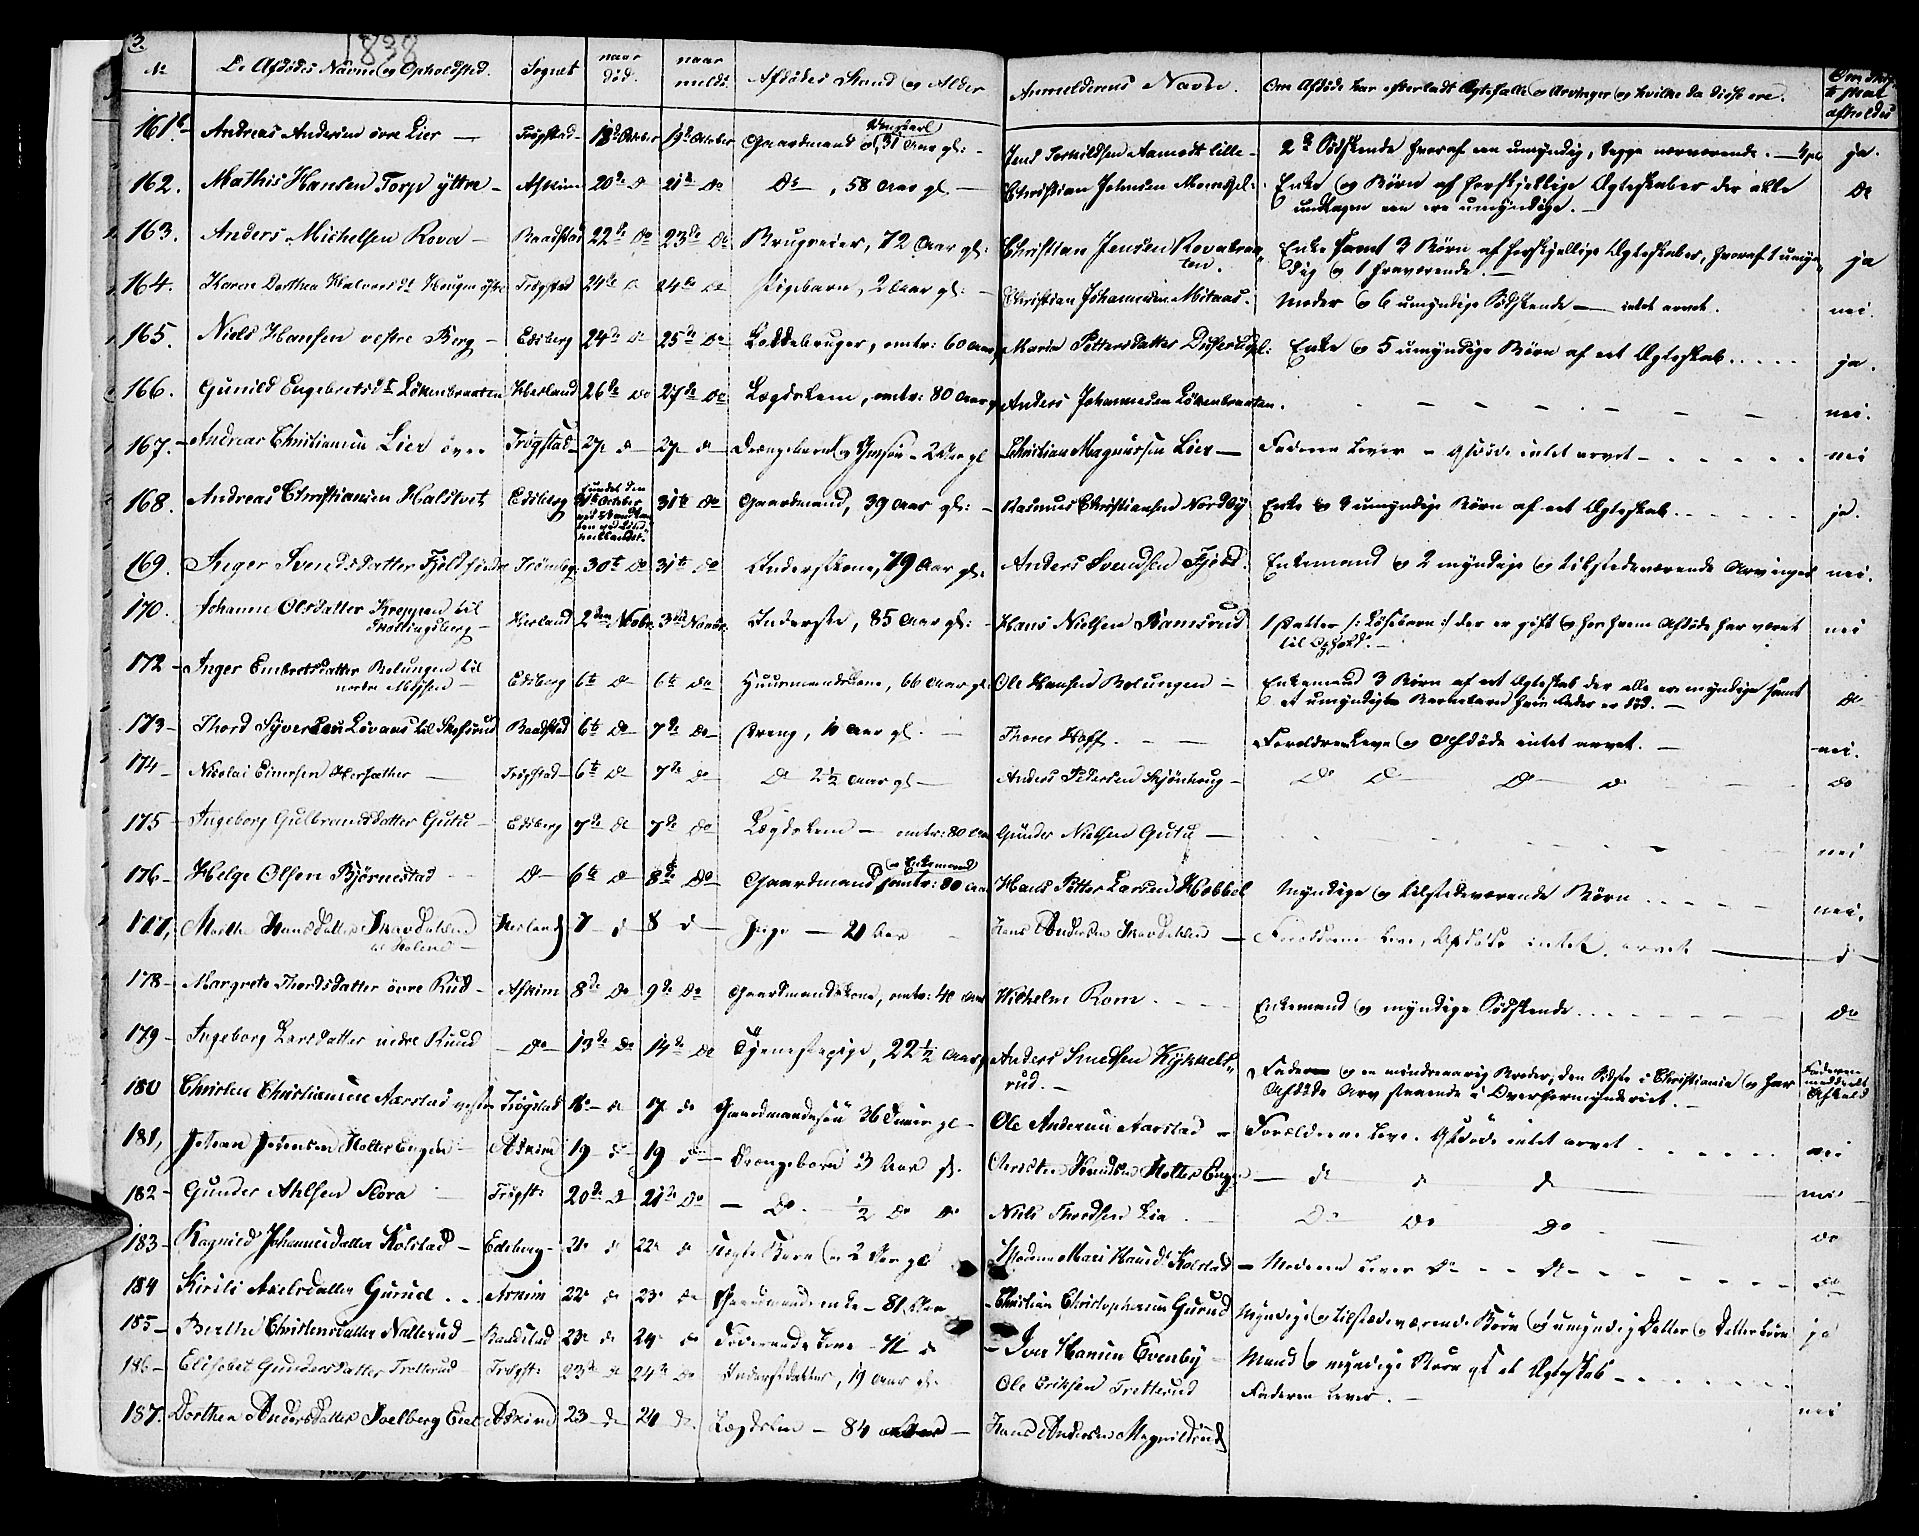 3.
1838
No De Afdødes Navne og Opholdsted. Sognet naar død. naar meldt Afdødes Stand og Alder Anmelderens Navn. Om Afdøde har efterladt Ægtefælle og Arvinger og hvilke da disse ere. Om Skifte skal afholdes
161b Andreas Andersen övre Lier — Trögstad 18de October 19de October Gaardmand og Ungkarl, 31 Aar gl: Jens Torkildsen Aamodt lille 2de Södskende hvoraf een umyndig, begge nærværende. ja.
162. Mathis Hansen Torp yttre Askim 20de Do 21de Do Do, 58 Aar gl — Christian Johnsen Enke og Börn af forskjellige Ægteskaber der alle Do
undtagen een ere umyndige.
163. Anders Michelsen Rova Baadstad 22de Do 23de Do Brugseier, 72 Aar gl: Christian Jensen Rovabraa- Enke samt 3 Börn af forskjellige Ægteskaber, hvoraf 1 umyn- ja
ten. dig og 1 fraværende.
164. Karen Dorthea Halvorsdt Haugen östre Trögstad 24de D 24de Do Pigebarn, 2 Aar gl: Christian Johannesen Moder og 6 umyndige Södskende — intet arvet. nei.
165. Niels Hansen vestre Berg Edsberg 24de Do 25de Do Lottebruger, omtr: 60 Aar Maria Pettersdatter Enke og 5 umyndige Börn af eet Ægteskab ja.
166. Gunild Engebretsdt Lökenbraaten Herland 26de Do 27de Do Lægdslem, omtr: 80 Aar g Anders Johannesen Lökenbraaten. nei.
167. Andreas Christiansen Lier övre Trögstad 27 d 27 d Drængebarn 2 Aar gl Christian Magnussen Lier — Faderen Lever — Afdöde intet arvet nei
168. Andreas Christiansen Halstvet Edsberg fundet den October 31te Do Gaardmand, 39 Aar gl: Rasmus Christiansen Nordby Enke og 4 umyndige Börn af eet Ægteskab ja.
169. Inger Svendsdatter Fjeld 30te Do 31te Do Inderstkone, 79 Aar gl: Anders Svendsen Fjeld. Enkemand og 2 myndige og tilstedeværende Arvinger nei.
170. Johanne Olsdatter Kroppen til Herland 2den Novbr. 3die Novbr. Inderste, 85 Aar gl: Hans Nielsen Ramsrud 1 Datter /: Löseborn :/ der er gift og hos hvem Afdöde har været nei
til Ophold.
172 Inger Embretsdatter Bolungen til Edsberg 6te D 6te Do Huusmandskone, 66 Aar gl Ole Hansen Bolungen Enkemand 3 Börn af eet Ægteskab der alle ere myndige samt Do
nordre Mysen et umyndigt Barnebarn hvis Fader er död.
173 Thord Syversen Lövaas til Skofsrud Baadstad 6te Do 7de Do Dreng, 10 Aar gl. Thorer Hoff. Forældrene Leve og Afdöde intet arvet. nei.
174 Nicolai Einersen Hersæther — Trögstad 6te D 7de Do D 2½ Aar gl Anders Pedersen Skjönhaug Do Do Do D Do
175 Ingeborg Gulbrandsdatter Gutu Edsberg 7de Do 7de Do Lægdslem — omtr: 80 Aar Gunder Nielsen Gutu — nei
176 Helge Olsen Bjørnestad D 6te D 8de Do Gaardmand og Enkemand, omtr: 80 Aar Hans Petter Larsen Hobbel Myndige og tilstedeværende Börn nei.
177, Marthe Hansdatter Skovdahlen Herland 7 d 8 d Pige — 21 Aar Hans Andersen Skovdahlen — Forældrene leve, Afdöde intet arvet — d
178 Margrete Thordsdatter övre Rud Askim 8de Do 9de Do Gaardmandskone, omtr: 40 Aar Wilhelm Rom. Enkemand og myndige Södskende Do
179 Ingeborg Larsdatter nedre Ruud Do 13de Do 14de Do Tjenestepige, 22½ Aar Anders Smedsen Kykkels- Faderen og en mindreaarig Broder, den Sidste i Christiania og har Faderen
rud. Afdöde Arv staaende i Overformynderiet. meddeelt Afkald
180 Christen Christiansen Aarstad vestre Trögstad 16 d 17 do Gaardmandssön 36 gl Ole Andersen Aarstad Forældrene Leve. Afdöde intet arvet nei
181, Johan Jörensen Holter Engen Askim 19 d 19 d Drengebarn 3 Aar gl. Christen Knudsen Holter Engen d d d nei
182 Gunder Ahlsen Slora Trögst: 20de D 21de Do Do. ½ Do Do Niels Thordsen Lia. Do Do Do do
183 Ragnild Johannesdatter Kolstad Edsberg 21 d 22 do Barn 2 Aar gl Moderen Mari Hansdt Kolstad Moderen Lever Do Do Do
184 Kirsti Axelsdatter Gurud Askim 22 do 23 do Gaardmandsenke — 81 Aar Christian Christophersen Gurud Myndige og tilstedeværende Börn og umyndig Datter og Datterbörn ja
185 Berthe Christensdatter Nallerud Baadstad 23 do 24 do Föderaadskone Iver Hansen Evenby Mand og myndige Börn af et Ægteskab
186 Elisabet Gundersdatter Tretterud Trögst: 23de D 24de Do Inderstdatter, 19 Aar gl. Ole Eriksen Tretterud Faderen lever. nei
187. Dorthea Andersdatter Solberg Eiet Askim 23 do 24 do Lægdslem — 84 Hans Andersen Magnildrud